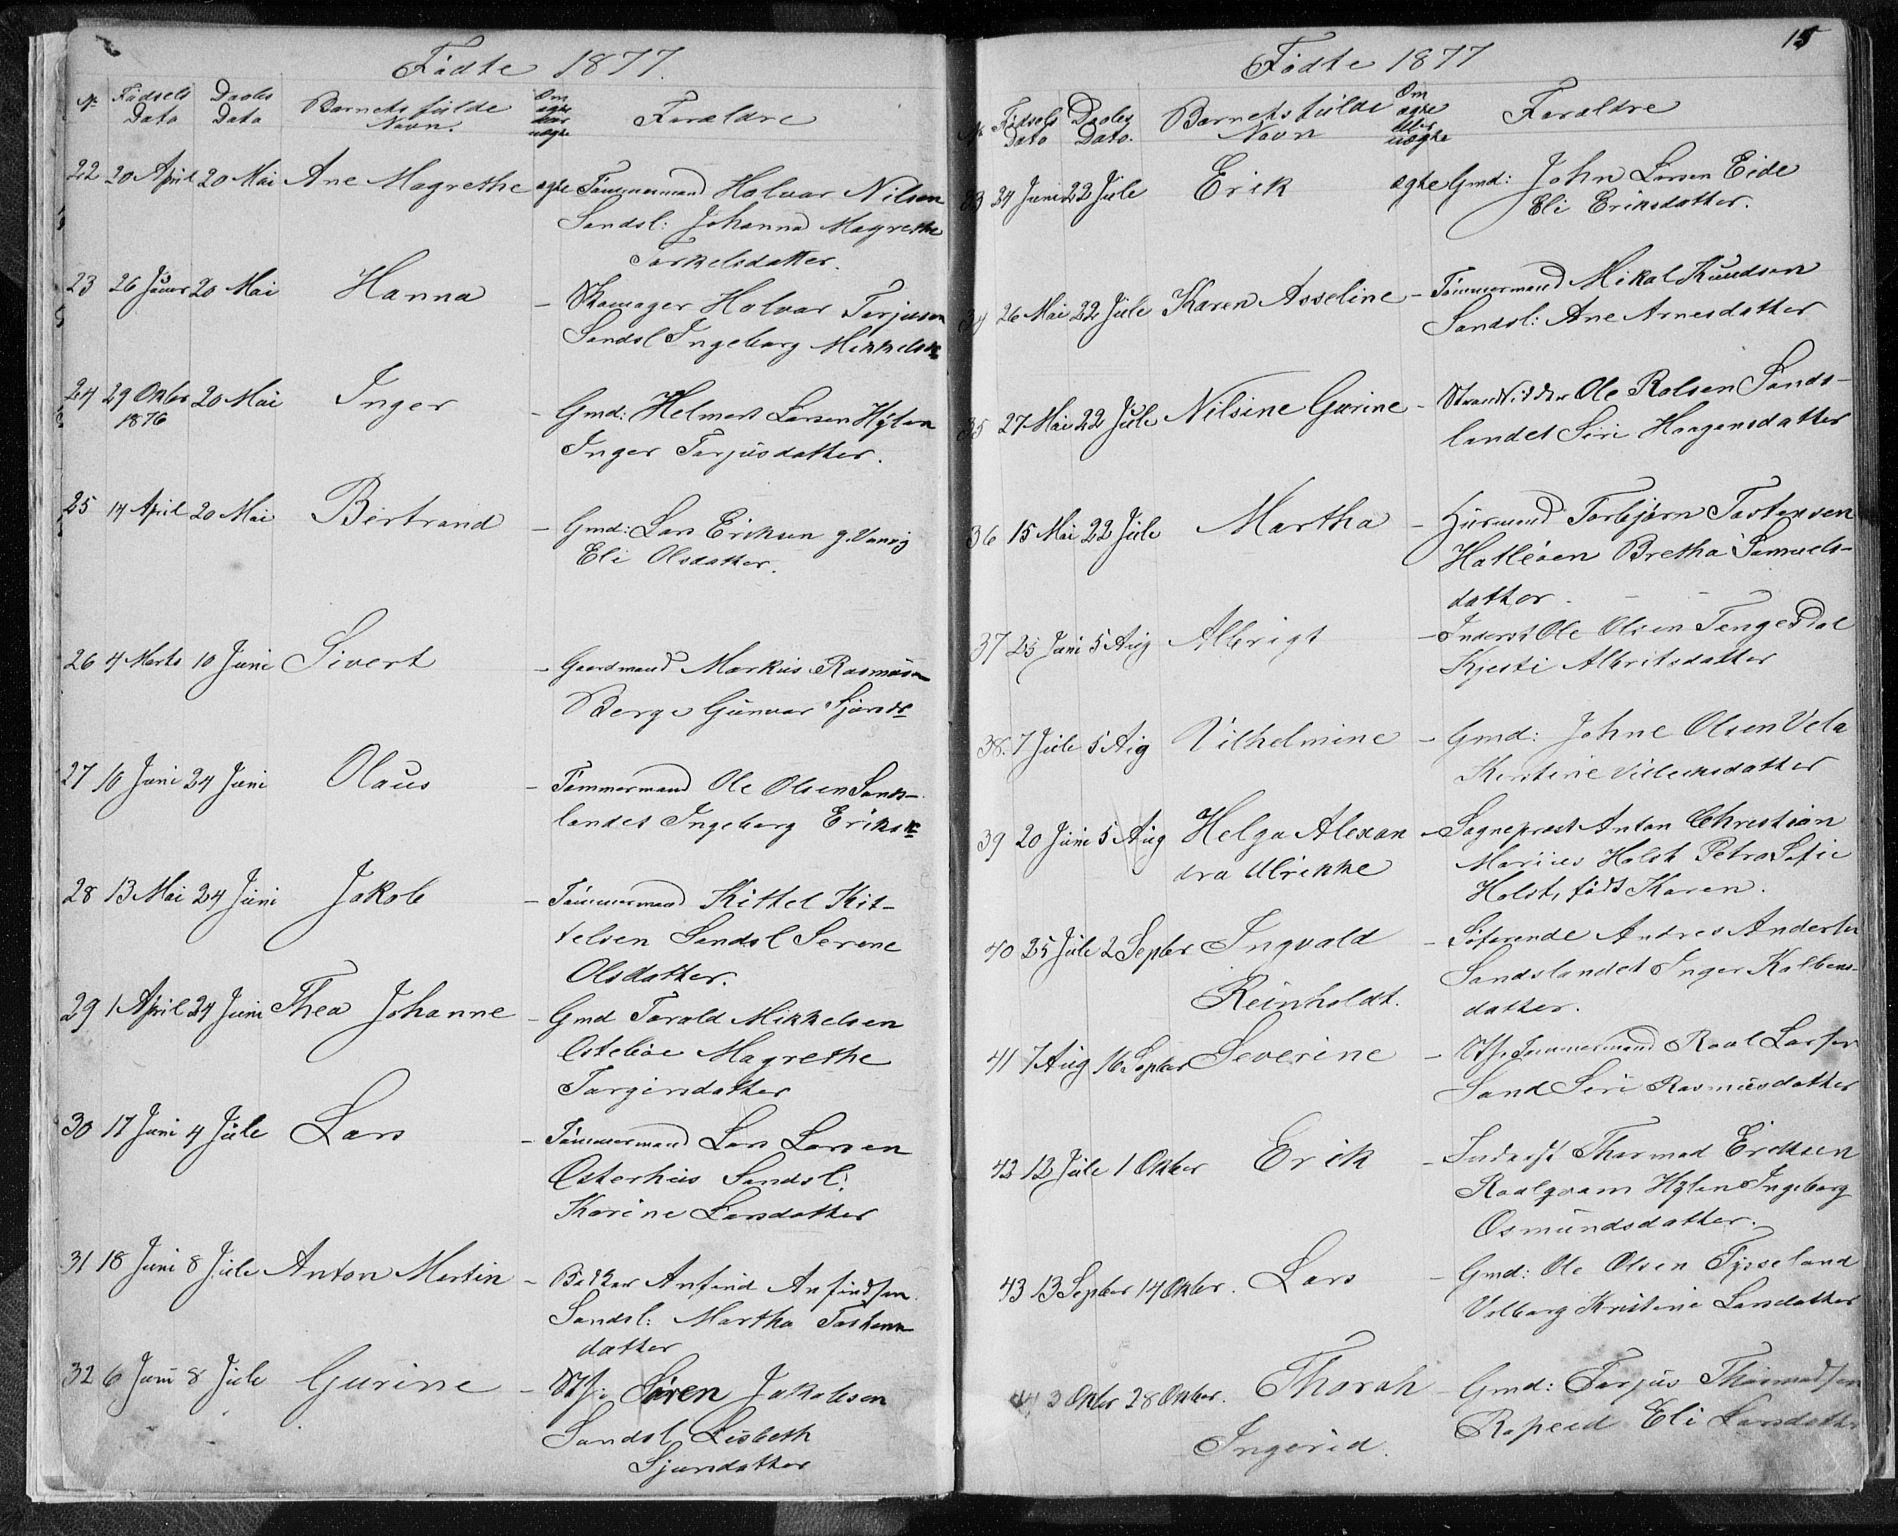 Fødte 1877.
No Fødsels Dato Daabs Dato Barnets fulde Navn. Om ægte eller uægte Forældre
22 20 April 20 Mai Ane Magrethe ægte Tømmermand Holvar Nilsen
Sandsl: Johanna Magrethe
Torkelsdatter.
23 26 Januar 20 Mai Hanna - Skomager Holvar Terjusen
Sandsl Ingeborg Mikkels
24 29 Okbr 20 Mai Inger - Gmd: Helmer Larsen Hylen
1876
Inger Terjusdatter.
25 14 April 20 Mai Bertrand - Gmd: Lars Eriksen
Eli Olsdatter.
26 4 Marts 10 Juni Sivert - Gaardmand Markus Rasmusen
Berge Gunvor Sjurds
27 10 Juni 24 Juni Olaus - Tømmermand Ole Olsen Sands-
landet Ingeborg Eriks
28 13 Mai 24 Juni Jakob - Tømmermand Kittel Kit-
telsen Sandsl Serene
Olsdatter.
29 1 April 24 Juni Thea Johanne - Gmd Tarald Mikkelsen
Østebøe Magrethe
Targersdatter
30 17 Juni 4 Jule Lars - Tømmermand Lars Larsen
Østerhus Sandsl:
Karine Larsdatter
31 18 Juni 8 Jule Anton Martin - Bødker Anfind Anfindsen
Sandsl: Martha Tostens
datter
32 6 Juni 8 Jule Gurine - Søren Jakobsen
Sandsl Lisbeth
Sjursdatter
15
Fødte 1877
No Fødsels Dato Daabs Dato. Barnets fulde Navn Om ægte eller uægte Forældre
33 24 Juni 22 Jule Erik ægte Gmd: John Larsen Eide
Eli Eriksdatter.
34 26 Mai 22 Jule Karen Asseline - Tømmermand Mikal Knudsen
Sandsl: Ane Arnesdatter
35 27 Mai 22 Jule Nilsine Gurine - Strandsidder Ole Rolsen Sands-
landet Siri Haagensdatter
36 15 Mai 22 Jule Martha - Husmand Torbjørn Tostensen
Hatleøen Bretha Samuels-
datter.
37 25 Juni 5 Aug Albrigt - Inderst Ole Olsen Tengesdal
Kjesti Albritsdatter
38. 7 Jule 5 Aug Vilhelmine - Gmd: Johne Olsen Vela
Kirstine Villumsdatter
39 20 Juni 5 Aug Helga Alexan - Sogneprest Anton Christian
dra Ulrikke Marius Holst Petra Sofie
Holst, født Karen.
40 25 Jule 2 Septbr Ingvald - Søfarende Andres Andersen
Reinholdt. Sandslandet Inger Kolbens-
datter.
41 7 Aug 16 Septbr Severine - Tømmermand Roal Larsen
Sand Siri Rasmusdatter
42 12 Jule 1 Okbr Erik - Inderst Thormod Eriksen
Roalqvam Hylen Ingeborg
Osmundsdatter.
43 13 Septber 14 Okbr. Lars - Gmd: Ole Olsen Tysseland
Valborg Kristine Larsdatter
44 3 Okbr 28 Okbr. Thorah - Gmd: Terjus Thormodsen
Ingerid. Rapeed Eli Larsdatter